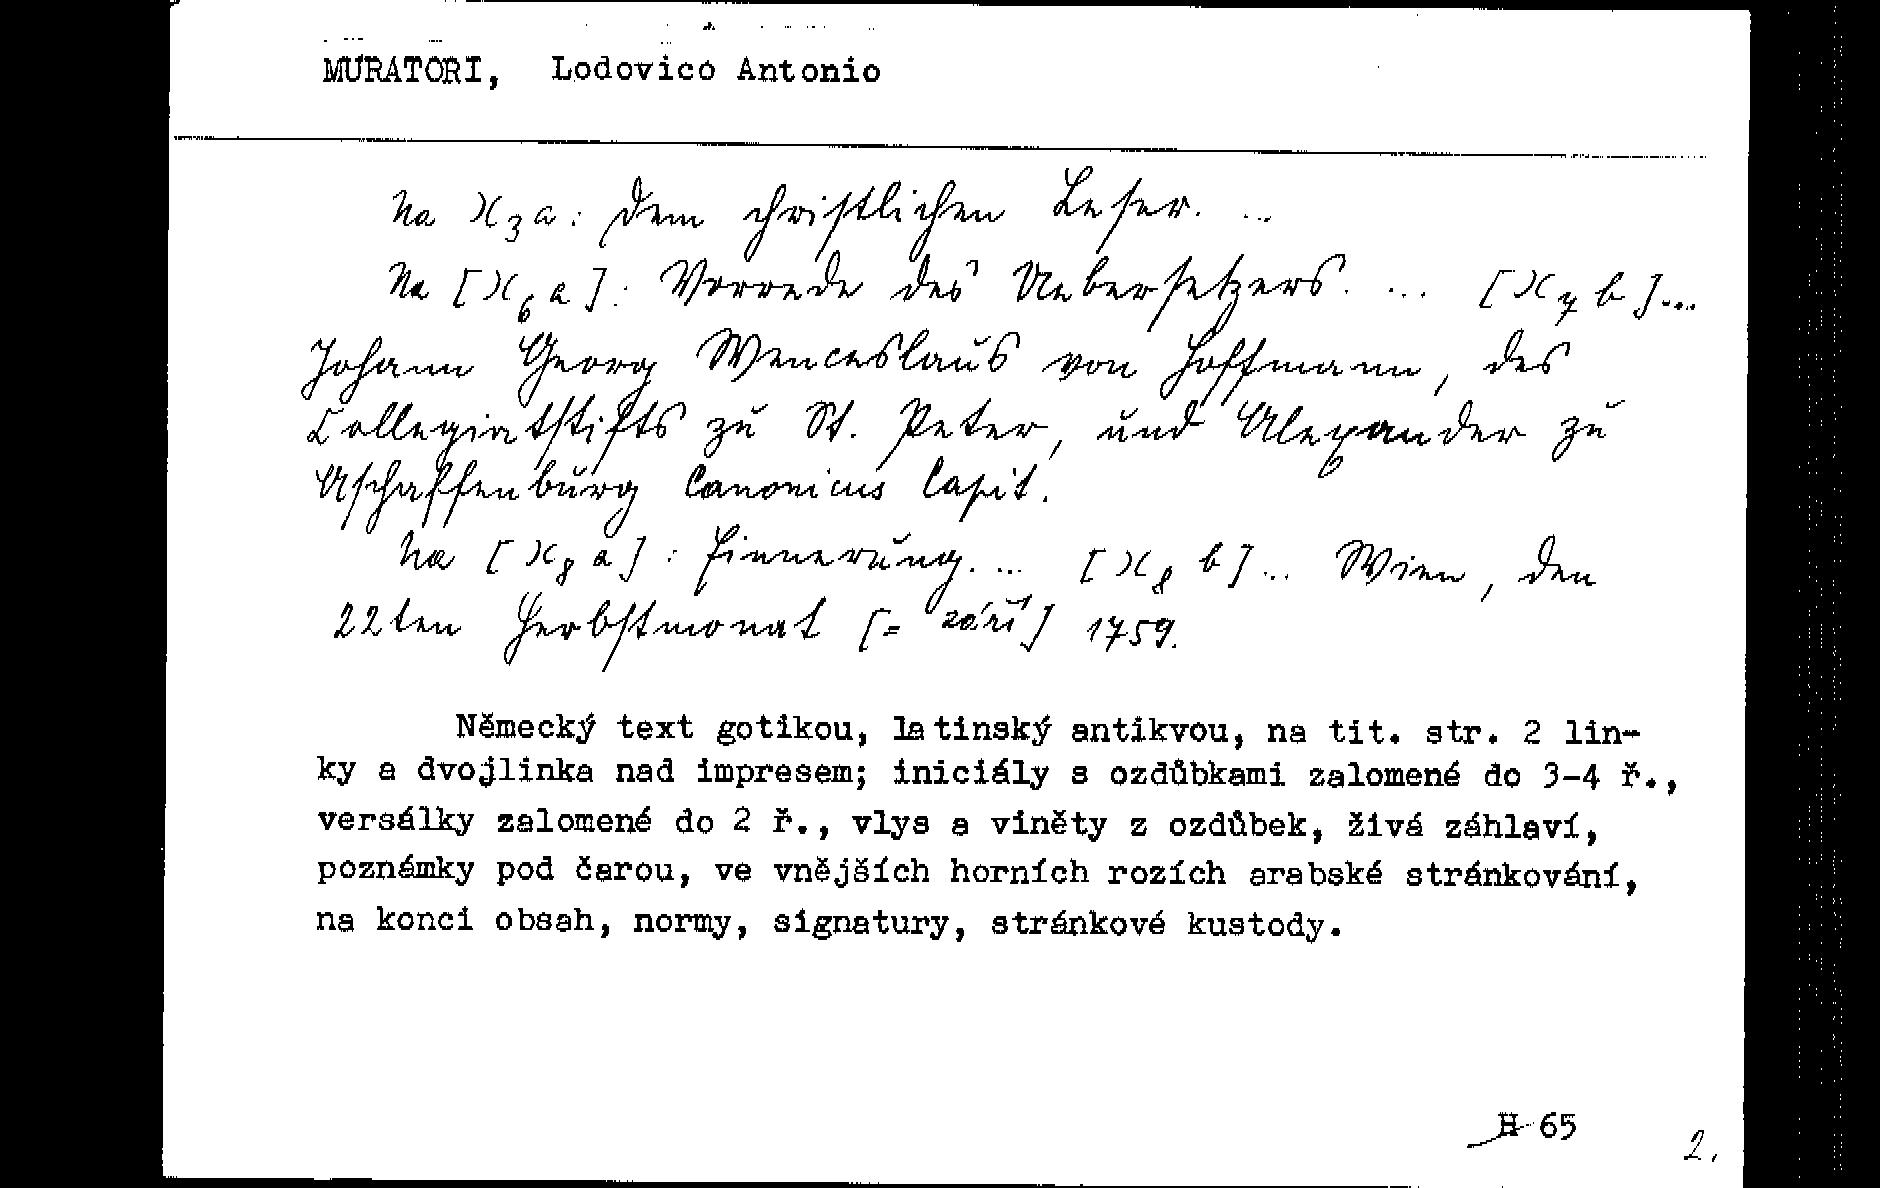 MURATORI, Lodovico Antonio
Na )( 3 a: Dem christlichen Leser. ...
Na [ )( 6 a ]: Vorrede des Uebersetzers. ... [ )( 7 b ]...
Johann Georg Wenceslaus von Hoffmann, des
Collegiatstifts zu St. Peter, und Alexander zu
Aschaffenburg Canonicus Capit.
Na [ )( 8 a ]: Einnerung. ... [ )( 8 b ]... Wien, den
22ten Herbstmonat [= září] 1759.
Německý text gotikou, latinský antikvou, na tit. str. 2 lin-
ky a dvojlinka nad impresem; iniciály s ozdůbkami zalomené do 3-4 ř.,
versálky zalomené do 2 ř., vlys a viněty z ozdůbek, živá záhlaví,
poznámky pod čarou, ve vnějších horních rozích arabské stránkování,
na konci obsah, normy, signatury, stránkové kustody.
H 65
2.